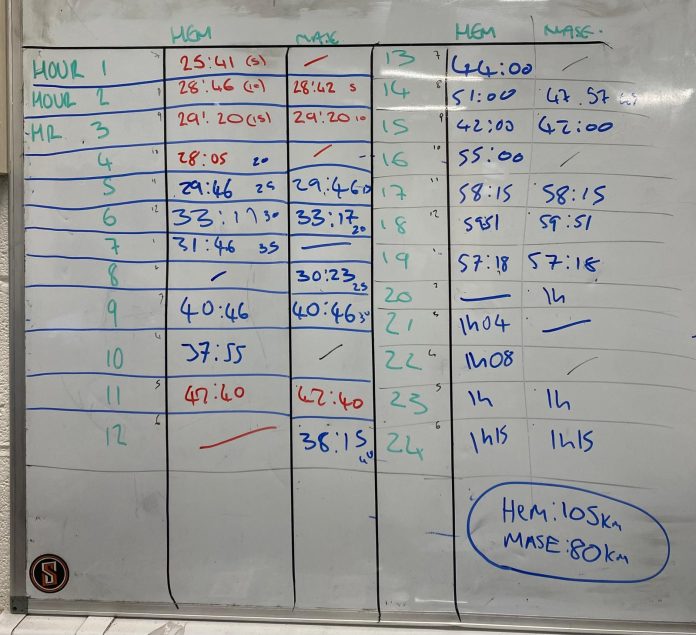 HEM MASE HEM MASE
HOUR 1 25:41 (5) / 13 7 44:00 /
HOUR 2 28:46 (10) 28:42 5 14 8 51:00 47.57
HR 3 29:20 (15) 29:20 10 15 9 42:00 42:00
4 10 28:05 20 / 16 10 55:00 /
5 11 29:46 25 29:46 17 11 58:15 58:15
6 12 33:17 30 33:17 20 18 12 5951 59:51
7 31:46 35 — 19 57:18 57:18
8 / 30:23 25 20 — 1h
9 40:46 40:46 30 21 3 1h04 —
10 37:55 / 22 4 1h08 /
11 5 47:40 47:40 23 5 1h 1h
12 6 / 38:15 40 24 6 1h15 1h15
HEM:105KM
MASE:80KM
S